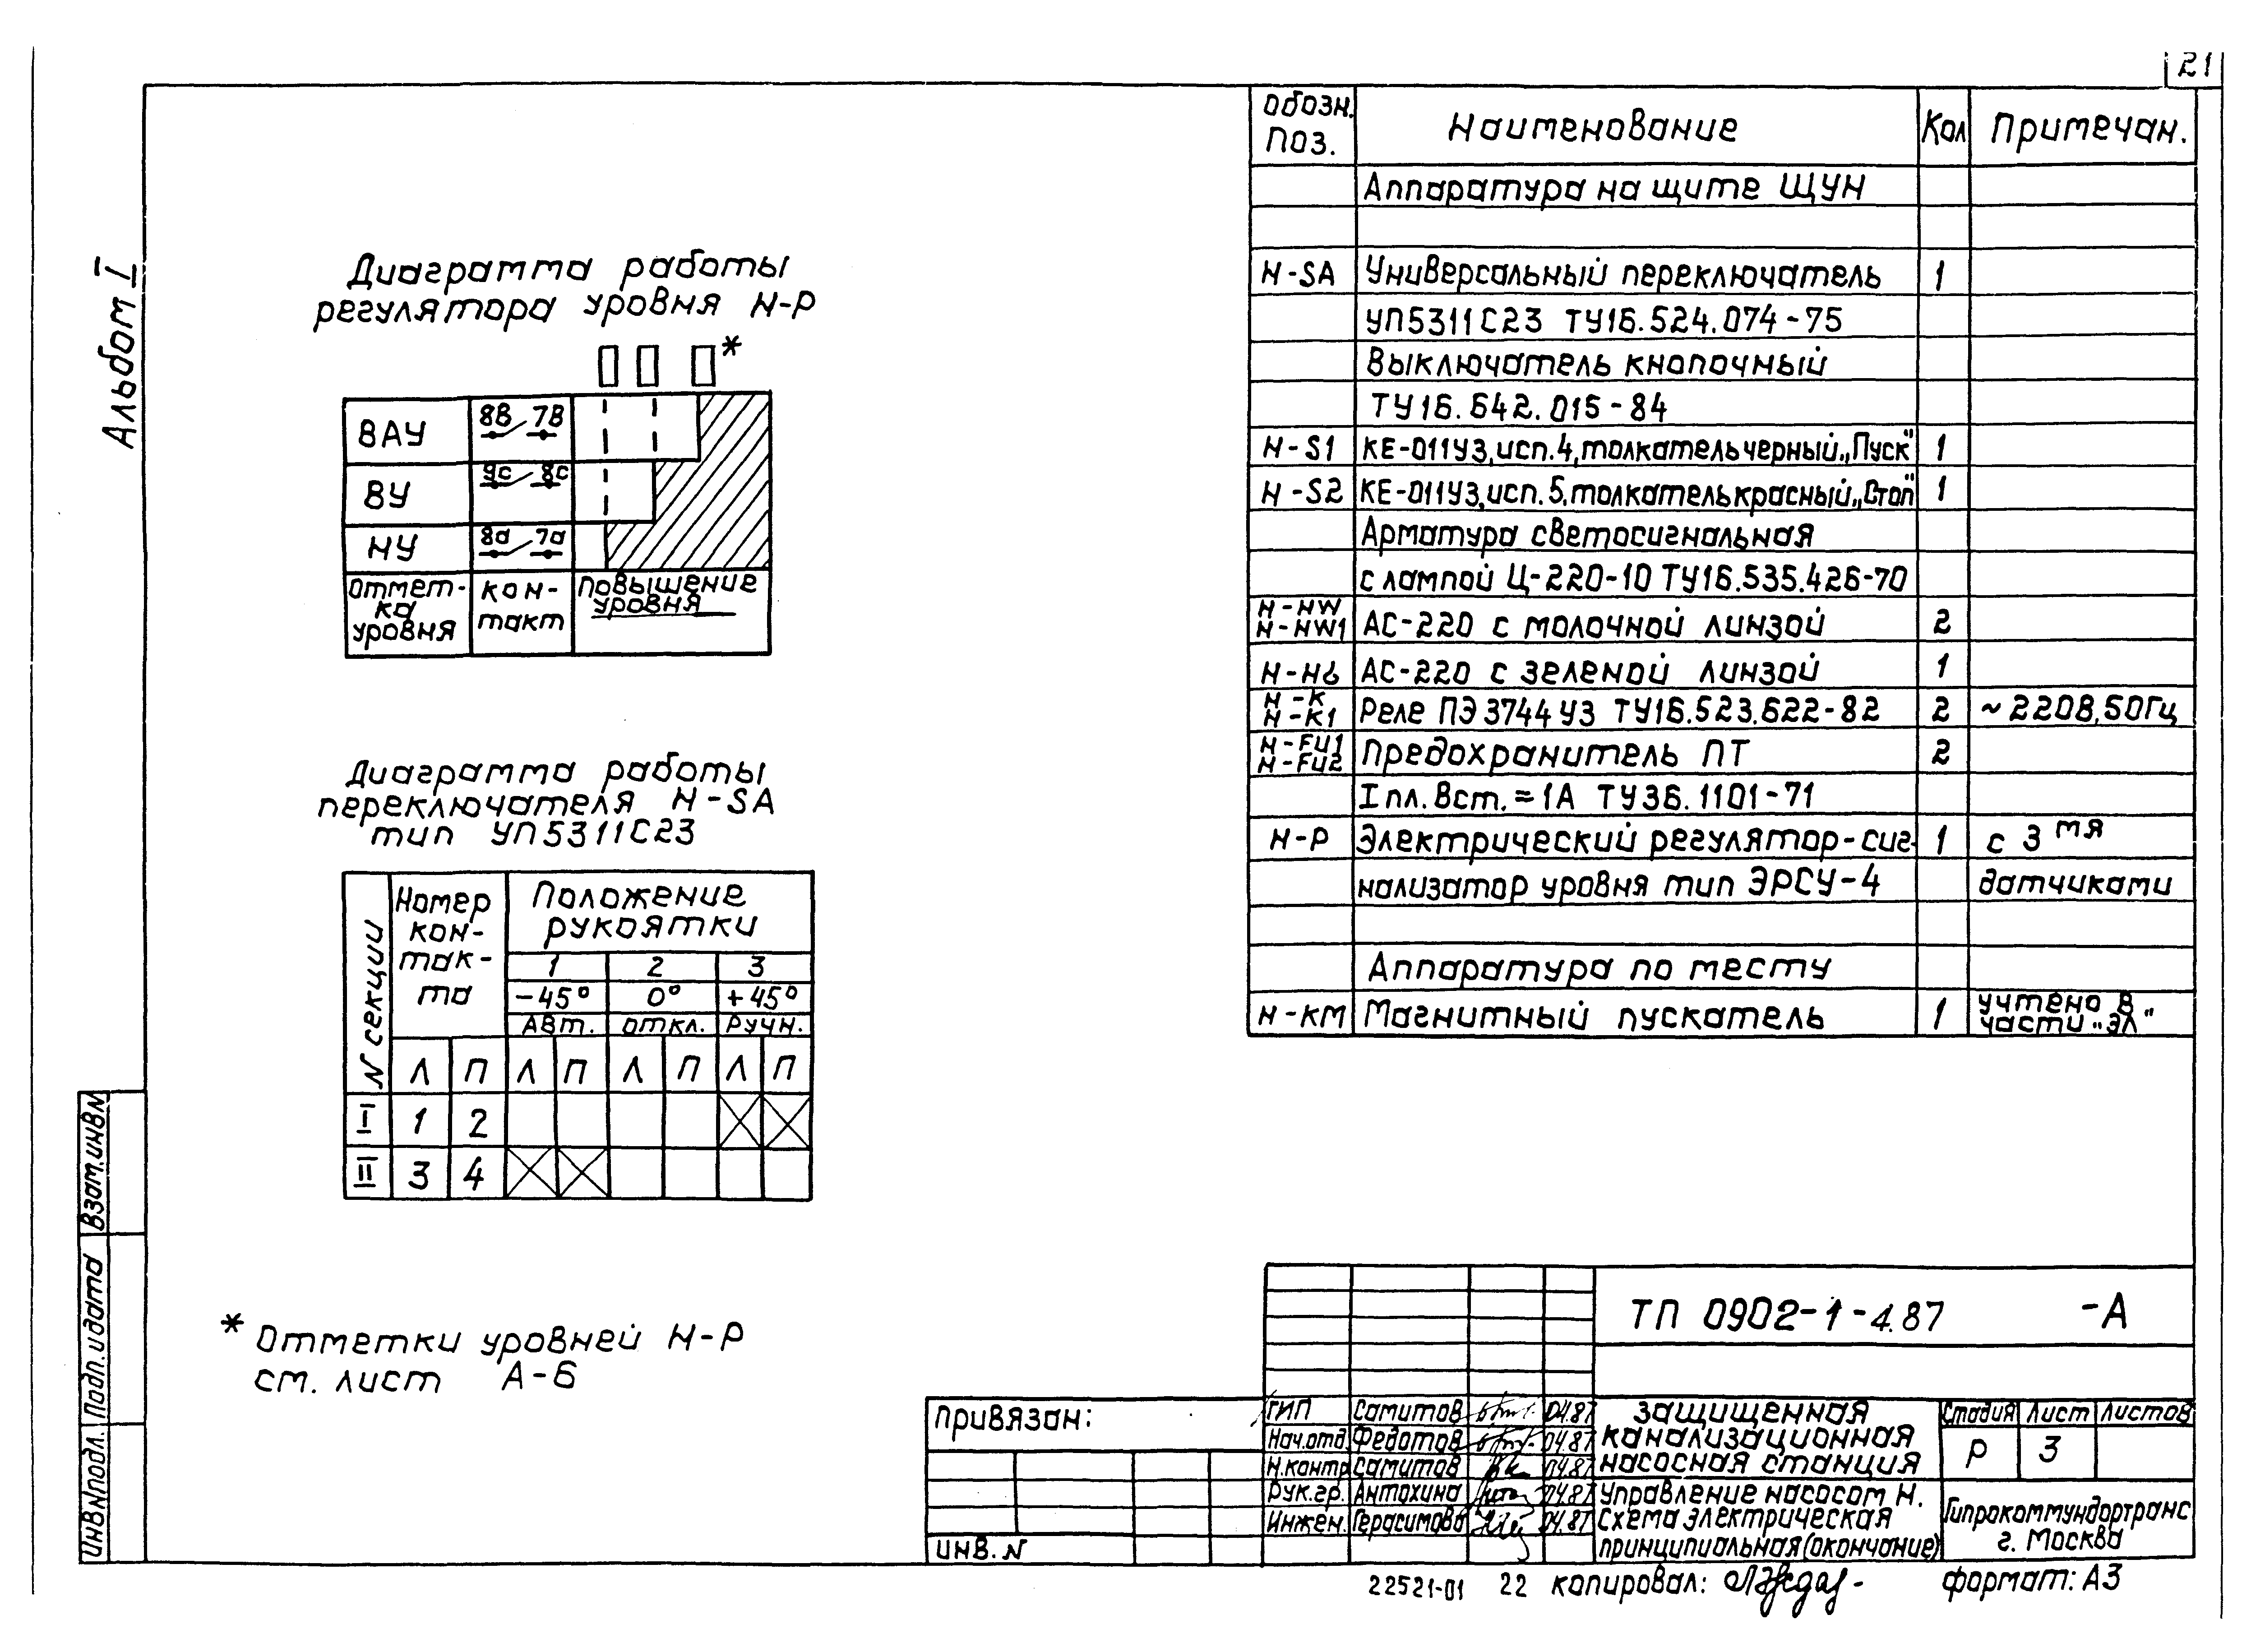 21
Альбом I
Диаграмма работы
регулятора уровня Н-Р
*
ВАУ 8В 7В
ВУ 9с 8с
НУ 8а 7а
Отмет-
ка
уровня
кон-
такт
Повышение
уровня
Диаграмма работы
переключателя Н-SA
тип УП5311С23
N секции
Номер
кон-
так-
та
Положение
рукоятки
1 2 3
-45° 0° +45°
Авт. откл. Ручн.
Л П Л П Л П Л П
I 1 2
II 3 4
* Отметки уровней Н-Р
см. лист А-6
Обозн. Поз. Наименование Кол Примечан.
Аппаратура на щите ЩУН
Н-SA Универсальный переключатель 1
УП5311С23 ТУ16.524.074-75
Выключатель кнопочный
ТУ16.642.015-84
Н-S1 КЕ-011У3, исп.4, толкатель черный „Пуск" 1
Н-S2 КЕ-011У3, исп.5, толкатель красный „Стоп" 1
Арматура светосигнальная
с лампой Ц-220-10 ТУ16.535.426-70
Н-HW
Н-HW1 АС-220 с молочной линзой 2
Н-HL АС-220 с зеленой линзой 1
Н-К
Н-К1 Реле ПЭ3744У3 ТУ16.523.622-82 2 ~220В,50Гц
Н-FU1
Н-FU2 Предохранитель ПТ 2
Iпл.вст.=1А ТУ36.1101-71
Н-Р Электрический регулятор-сиг- 1 с 3мя
нализатор уровня тип ЭРСУ-4 датчиками
Аппаратура по месту
Н-КМ Магнитный пускатель 1 учтено в
части „ЭЛ"
ТП 0902-1-4.87 -А
Привязан:
ИНВ. N
ГИП Самитов 04.87
Нач.отд. Федотов 04.87
Н.контр Самитов 04.87
Рук.гр. Антохина 04.87
Инжен. Герасимова 04.87
Защищенная
канализационная
насосная станция
Стадия Лист Листов
Р 3
Управление насосом Н.
Схема электрическая
принципиальная (окончание)
Гипрокоммундортранс
г. Москва
22521-01 22 копировал: формат: А3
Инв.Nподл. Подп. и дата Взам.инвN